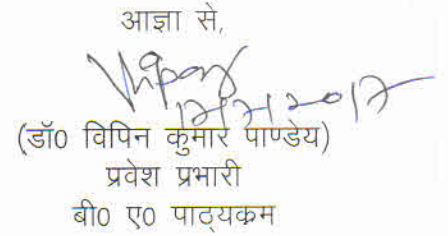 आज्ञा से,
(डॉ0 विपिन कुमार पाण्डेय)
प्रवेश प्रभारी
बी0 ए0 पाठ्यक्रम